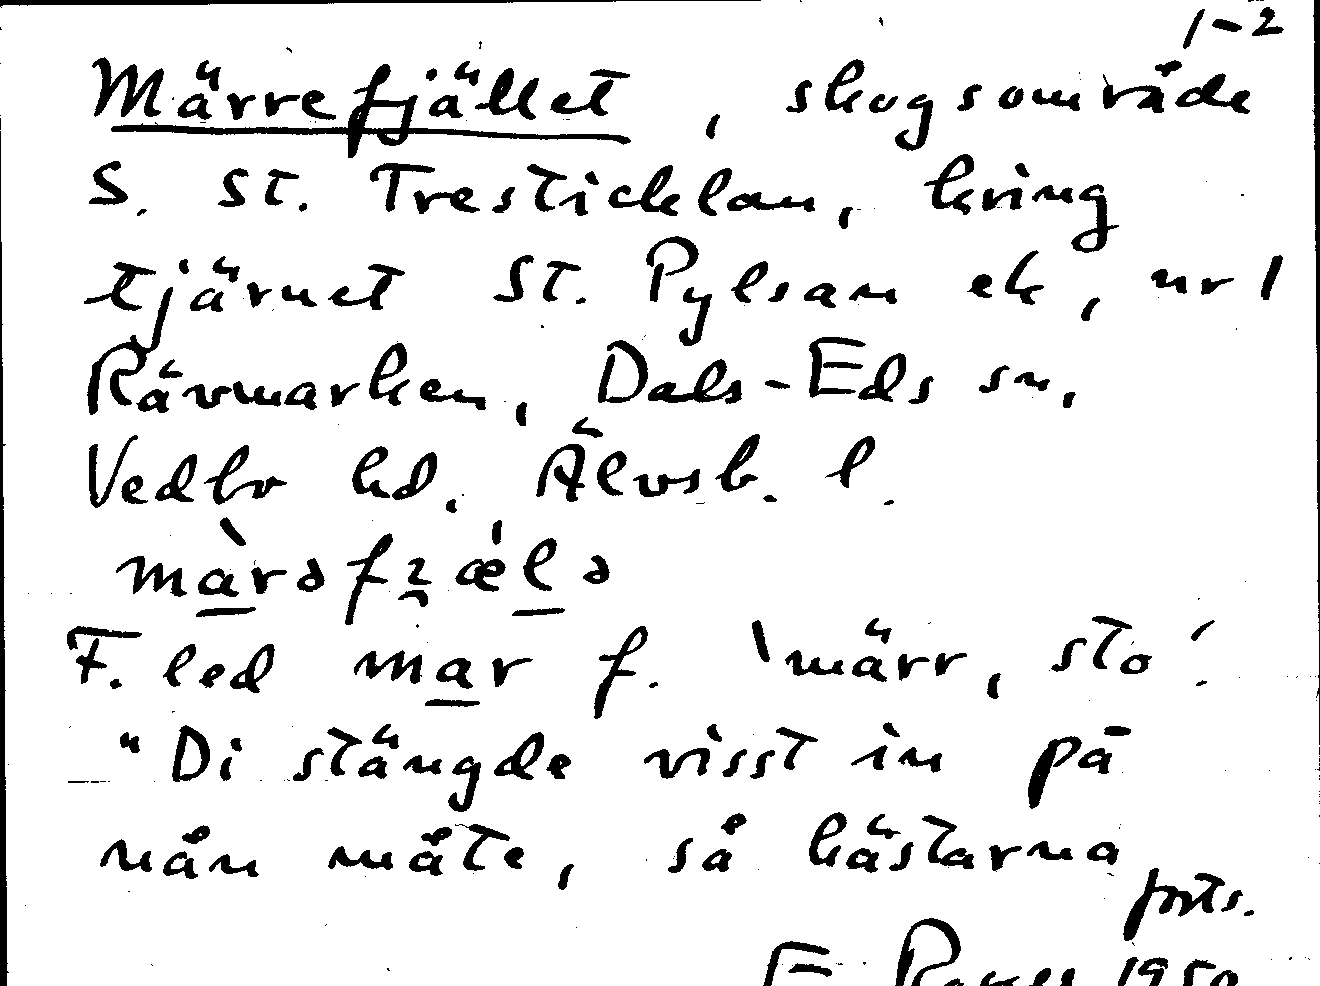 1-2
Märrefjället, skogsområde
S. St. Tresticklan, kring
tjärnet St. Pylsan ek, nr 1
Rävmarken, Dals-Eds sn,
Vedbo hd, Älvsb. l.
F. led mar f. 'märr, sto'.
"Di stängde visst in på
nån måte, så hästarna
forts.